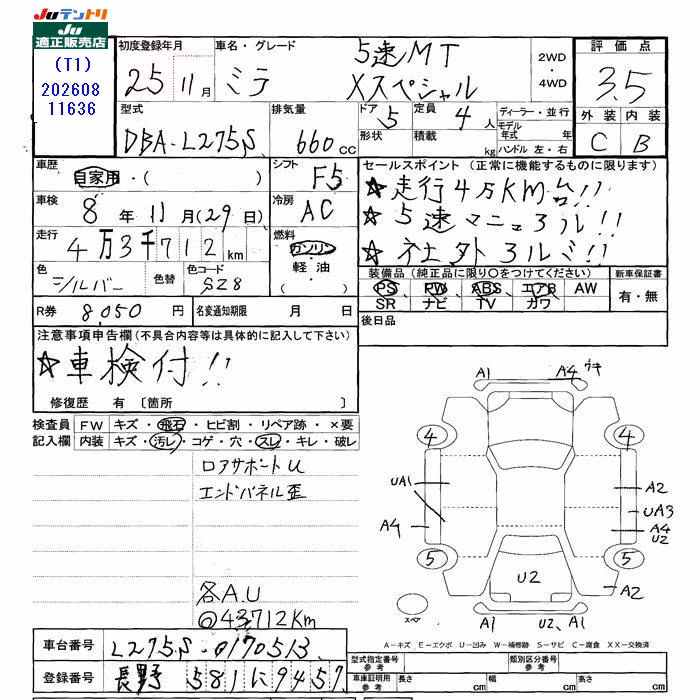 Juテントリ
Ju
適正販売店
(T1)
202608
11636
初度登録年月
25 11月
車名・グレード
ミラ
5速MT
Xスペシャル
2WD
・
4WD
評価点
3.5
外装 内装
C B
型式
DBA-L275S
排気量
660cc
ドア 5
形状
定員 4人
積載 kg
ディーラー・並行
モデル年式 年
ハンドル 左・右
車歴
自家用・( )
シフト
F5
車検
8年11月(29日)
冷房
AC
走行
4万3千712km
燃料
ガソリン
軽油
・( )
色
シルバー
色替
色コード
S28
R券 8050円
名変通知期限 月 日
セールスポイント(正常に機能するものに限ります)
☆走行4万KM台!!
☆5速マニュアル!!
☆社外アルミ!!
装備品(純正品に限り○をつけてください)
PS PW ABS エアB AW
SR ナビ TV カワ
新車保証書
有・無
後日品
注意事項申告欄(不具合内容等は具体的に記入して下さい)
☆車検付!!
修復歴 有〔箇所 〕
検査員記入欄
FW キズ・飛石・ヒビ割・リペア跡・×要
内装 キズ・汚レ・コゲ・穴・スレ・キレ・破レ
ロアサポートU
エンドパネル歪
各A.U
◎43712Km
A1 A4 ウキ
4 4
UA1 A2
UA3
A4 A4
U2
5 5
U2
A2
スペア
A1 U2、A1
A-キズ E-エクボ U-凹み W-補修跡 S-サビ C-腐食 XX-交換済
車台番号 L275S-0170513
登録番号 長野 581 に 9457
型式指定番号
参考
類別区分番号
参考
車庫証明用
参考
長さ cm
幅 cm
高さ cm